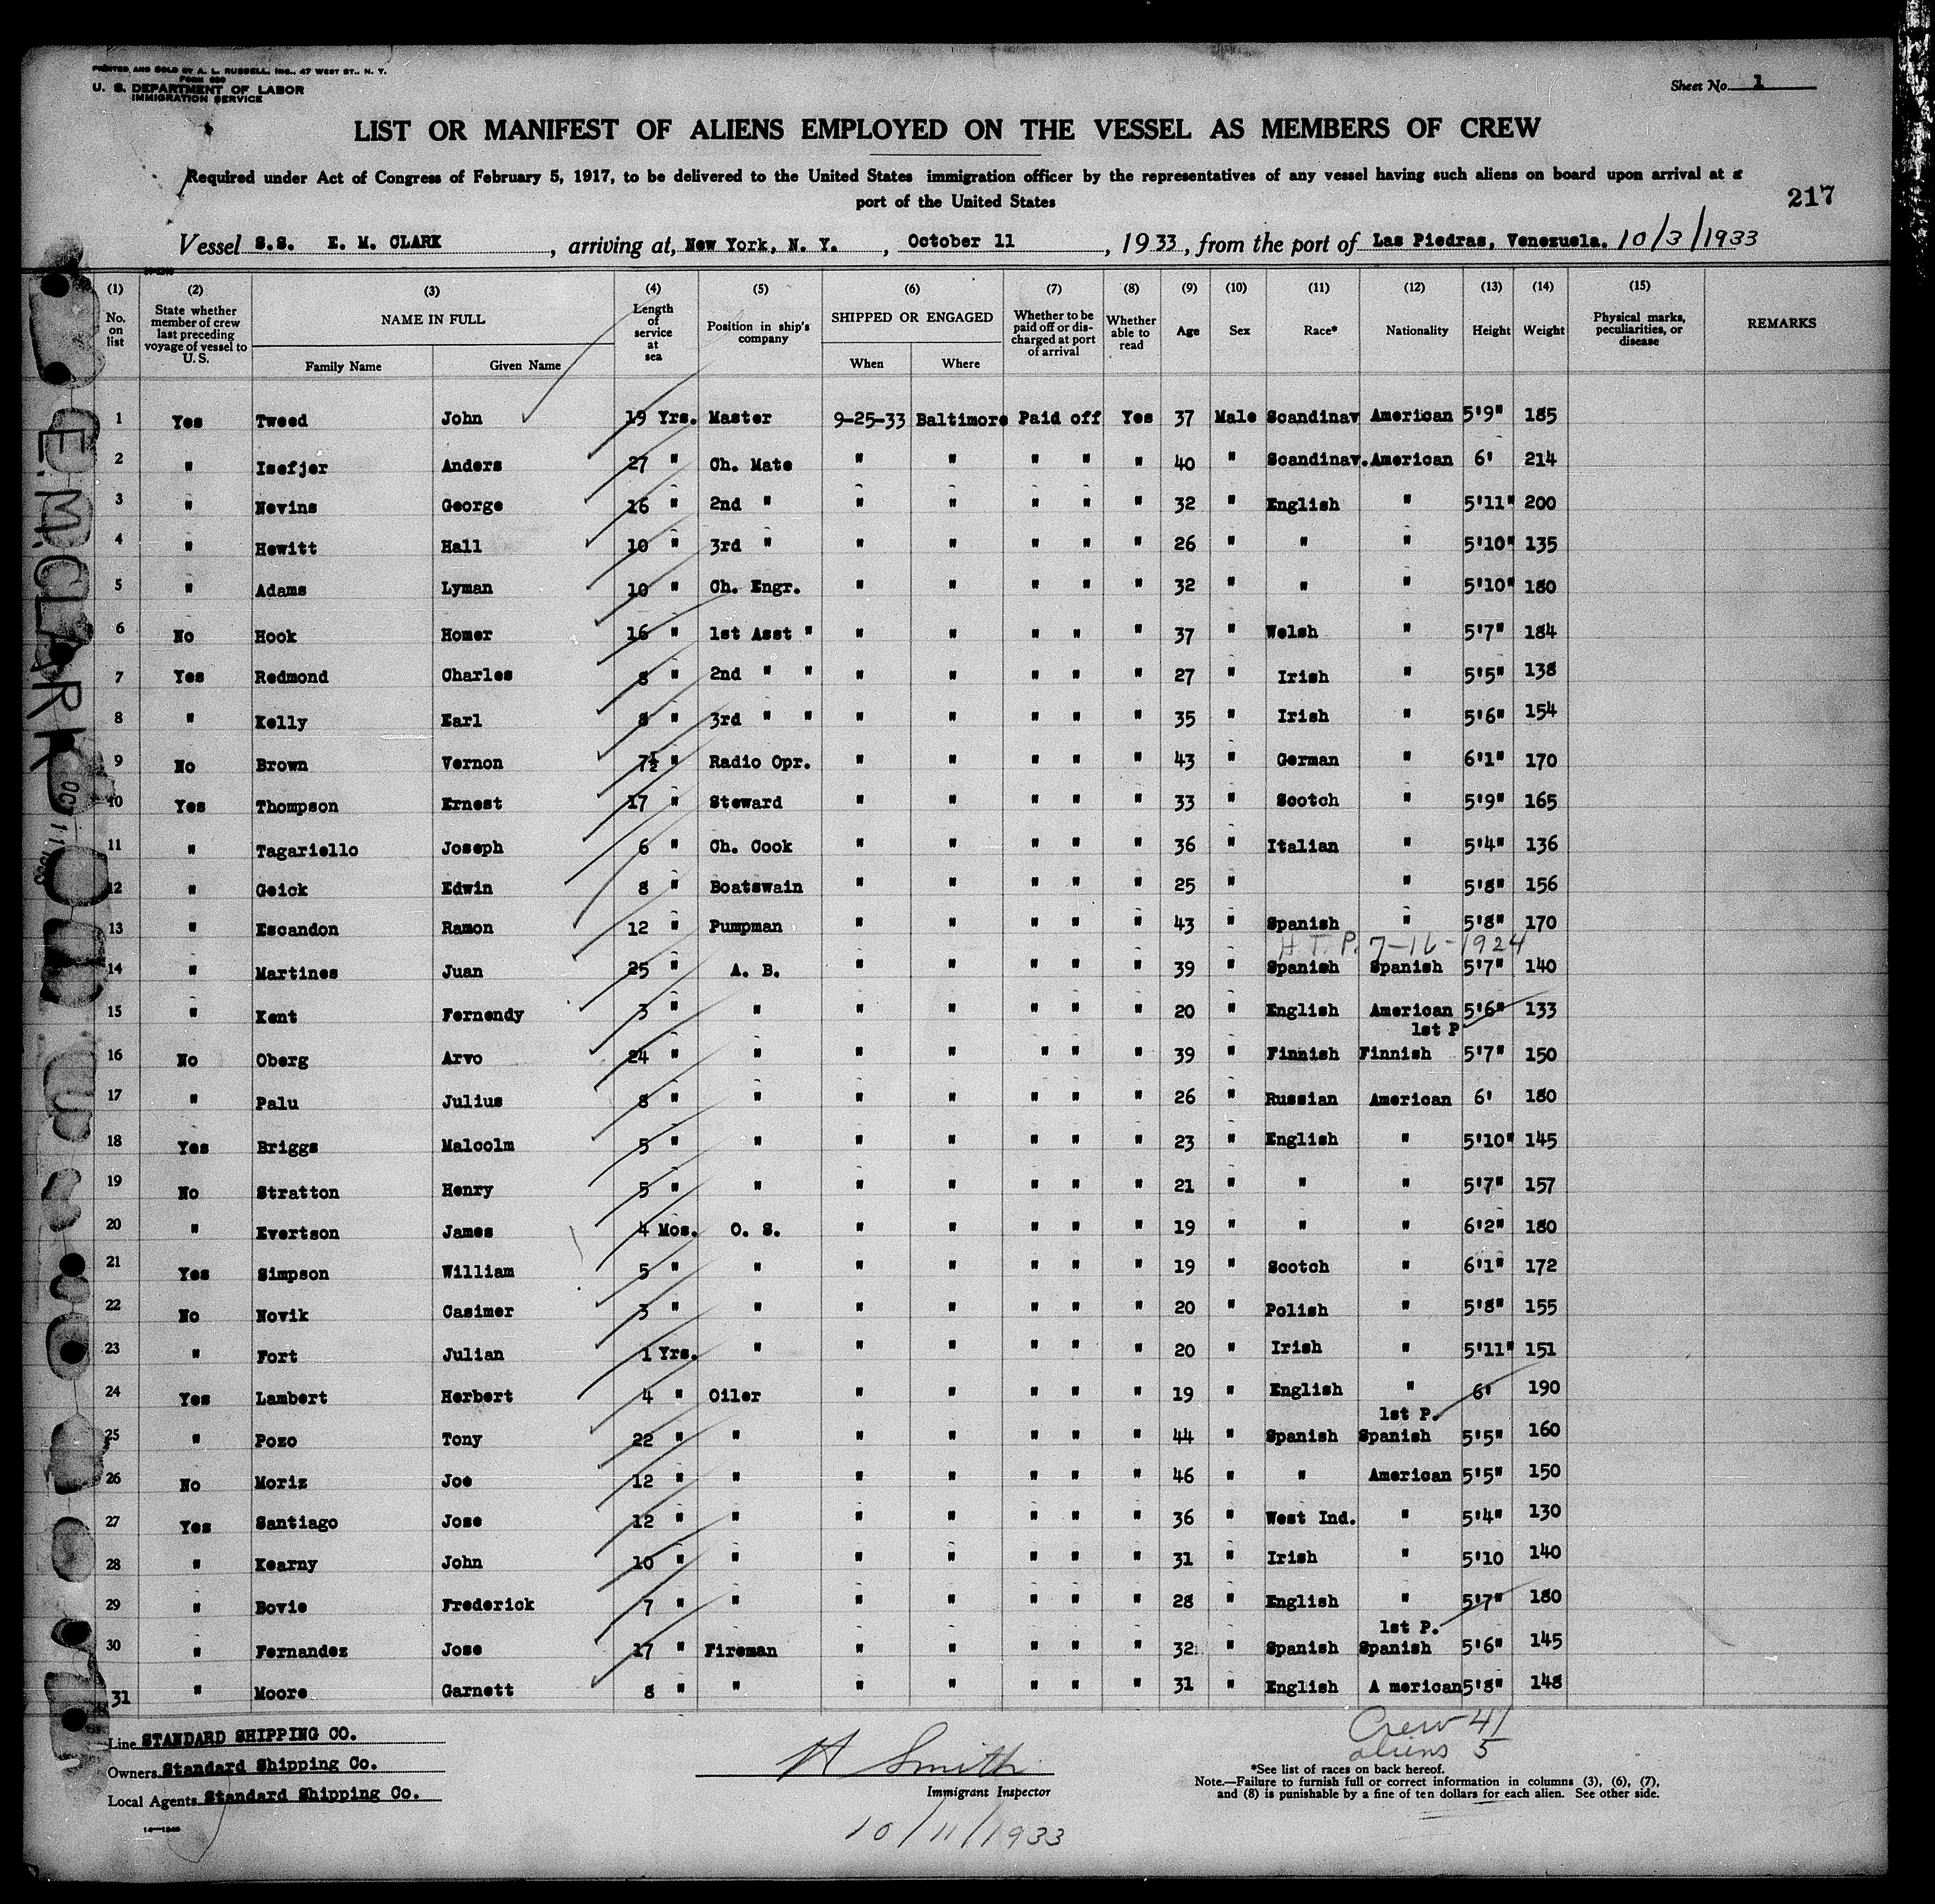 PRINTED AND SOLD BY A. L. RUSSELL, INC., 47 WEST ST., N. Y.
FORM 680
U. S. DEPARTMENT OF LABOR
IMMIGRATION SERVICE
Sheet No. 1
LIST OR MANIFEST OF ALIENS EMPLOYED ON THE VESSEL AS MEMBERS OF CREW
Required under Act of Congress of February 5, 1917, to be delivered to the United States immigration officer by the representatives of any vessel having such aliens on board upon arrival at a
port of the United States
217
Vessel S.S. E. M. CLARK, arriving at, New York, N. Y., October 11, 1933, from the port of Las Piedras, Venezuela. 10/3/1933
(1) No. on list (2) State whether member of crew last preceding voyage of vessel to U. S. (3) NAME IN FULL Family Name Given Name (4) Length of service at sea (5) Position in ship's company (6) SHIPPED OR ENGAGED When Where (7) Whether to be paid off or discharged at port of arrival (8) Whether able to read (9) Age (10) Sex (11) Race* (12) Nationality (13) Height (14) Weight (15) Physical marks, peculiarities, or disease REMARKS
1 Yes Tweed John 19 Yrs. Master 9-25-33 Baltimore Paid off Yes 37 Male Scandinav American 5'9" 185
2 " Isefjer Anders 27 " Ch. Mate " " " " " 40 " Scandinav. American 6' 214
3 " Nevins George 16 " 2nd " " " " " " 32 " English " 5'11" 200
4 " Hewitt Hall 10 " 3rd " " " " " " 26 " " " 5'10" 135
5 " Adams Lyman 10 " Ch. Engr. " " " " " 32 " " " 5'10" 180
6 No Hook Homer 16 " 1st Asst " " " " " " 37 " Welsh " 5'7" 184
7 Yes Redmond Charles 8 " 2nd " " " " " " " 27 " Irish " 5'5" 138
8 " Kelly Earl 8 " 3rd " " " " " " " 35 " Irish " 5'6" 154
9 No Brown Vernon 7½ " Radio Opr. " " " " " 43 " German " 6'1" 170
10 Yes Thompson Ernest 17 " Steward " " " " " 33 " Scotch " 5'9" 165
11 " Tagariello Joseph 6 " Ch. Cook " " " " " 36 " Italian " 5'4" 136
12 " Geick Edwin 8 " Boatswain " " " " " 25 " " 5'8" 156
13 " Escandon Ramon 12 " Pumpman " " " " " 43 " Spanish " 5'8" 170
H.T.P. 7-16-1924
14 " Martines Juan 25 " A. B. " " " " " 39 " Spanish Spanish 5'7" 140
15 " Kent Fernendy 3 " " " " " " " 20 " English American 5'6" 133
1st P
16 No Oberg Arvo 24 " " " " " " " 39 " Finnish Finnish 5'7" 150
17 " Palu Julius 8 " " " " " " " 26 " Russian American 6' 180
18 Yes Briggs Malcolm 5 " " " " " " " 23 " English " 5'10" 145
19 No Stratton Henry 5 " " " " " " " 21 " " " 5'7" 157
20 " Evertson James 4 Mos. O. S. " " " " " 19 " " " 6'2" 180
21 Yes Simpson William 5 " " " " " " " 19 " Scotch " 6'1" 172
22 No Novik Casimer 3 " " " " " " " 20 " Polish " 5'8" 155
23 " Fort Julian 1 Yrs. " " " " " " 20 " Irish " 5'11" 151
24 Yes Lambert Herbert 4 " Oiler " " " " " 19 " English " 6' 190
1st P.
25 " Pozo Tony 22 " " " " " " " 44 " Spanish Spanish 5'5" 160
26 No Moriz Joe 12 " " " " " " " 46 " " American 5'5" 150
27 Yes Santiago Jose 12 " " " " " " " 36 " West Ind. " 5'4" 130
28 " Kearny John 10 " " " " " " " 31 " Irish " 5'10 140
29 " Bovie Frederick 7 " " " " " " " 28 " English " 5'7" 180
1st P.
30 " Fernandez Jose 17 " Fireman " " " " " 32 " Spanish Spanish 5'6" 145
31 " Moore Garnett 8 " " " " " " " 31 " English A merican 5'8" 148
Crew 41
aliens 5
Line STANDARD SHIPPING CO.
Owners Standard Shipping Co.
Local Agents Standard Shipping Co.
H Smith
Immigrant Inspector
10/11/1933
*See list of races on back hereof.
Note.—Failure to furnish full or correct information in columns (3), (6), (7),
and (8) is punishable by a fine of ten dollars for each alien. See other side.
14—1240
E.M.CLARK
OCT 11 1933